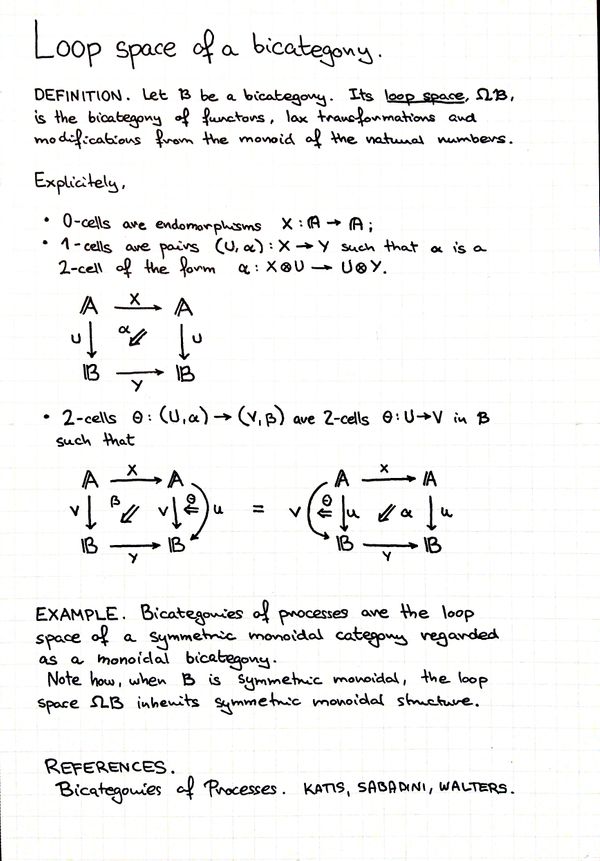 Loop space of a bicategory.
DEFINITION. Let B be a bicategory. Its loop space, ΩB,
is the bicategory of functors, lax transformations and
modifications from the monoid of the natural numbers.
Explicitely,
• 0-cells are endomorphisms X : A → A;
• 1-cells are pairs (U, α) : X → Y such that α is a
2-cell of the form α : X⊗U → U⊗Y.
A X A
U α U
B Y B
• 2-cells θ : (U,α) → (V,β) are 2-cells θ : U→V in B
such that
A X A A X A
V β V θ u = V θ u α u
B Y B B Y B
EXAMPLE. Bicategories of processes are the loop
space of a symmetric monoidal category regarded
as a monoidal bicategory.
Note how, when B is symmetric monoidal, the loop
space ΩB inherits symmetric monoidal structure.
REFERENCES.
Bicategories of Processes. KATIS, SABADINI, WALTERS.